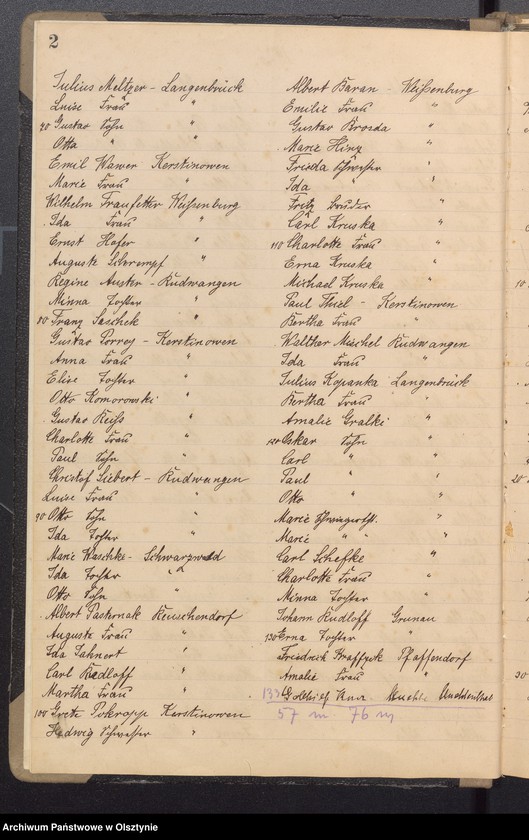 2
Julius Meltzer - Langenbrück
Luise Frau "
70 Gustav Sohn "
Otto " "
Emil Wawer Kerstinowen
Marie Frau "
Wilhelm Fraufetter Weißenburg
Ida Frau "
Ernst Hofer "
Auguste "
Regine Auster - Rudwangen
Minna Tochter "
80 Franz Saschek "
Gustav Porrey - Kerstinowen
Anna Frau "
Elise Tochter "
Otto Komorowski "
Gustav Reiß "
Charlotte Frau "
Paul Sohn "
Christof Siebert - Rudwangen
Luise Frau "
90 Otto Sohn "
Ida Tochter "
Marie Waschke - Schwarzwald
Ida Tochter "
Otto Sohn "
Albert Pasternak Reuschendorf
Auguste Frau "
Ida Jahnert "
Carl Kudloff "
Martha Frau "
100 Grete Pokropp Kerstinowen
Hedwig Schwester "
Albert Baran - Weißenburg
Emilie Frau "
Gustav Brosda "
Marie Hinz "
Frieda Schwester "
Ida "
Fritz Bruder "
Carl Kruska "
110 Charlotte Frau "
Erna Kruska "
Michael Kruska "
Paul Thiel - Kerstinowen
Bertha Frau "
Walther Mischel Rudwangen
Ida Frau "
Julius Kopanka Langenbrück
Bertha Frau "
Amalie Gralki "
120 Oskar Sohn "
Carl " "
Paul " "
Otto " "
Marie "
Marie " "
Carl Schefke "
Charlotte Frau "
Minna Tochter "
Johann Kudloff Grunau
130 Erna Tochter "
Friedrich Pfaffendorf
Amalie Frau "
133 Gottlieb
57 m 76 m
Archiwum Państwowe w Olsztynie